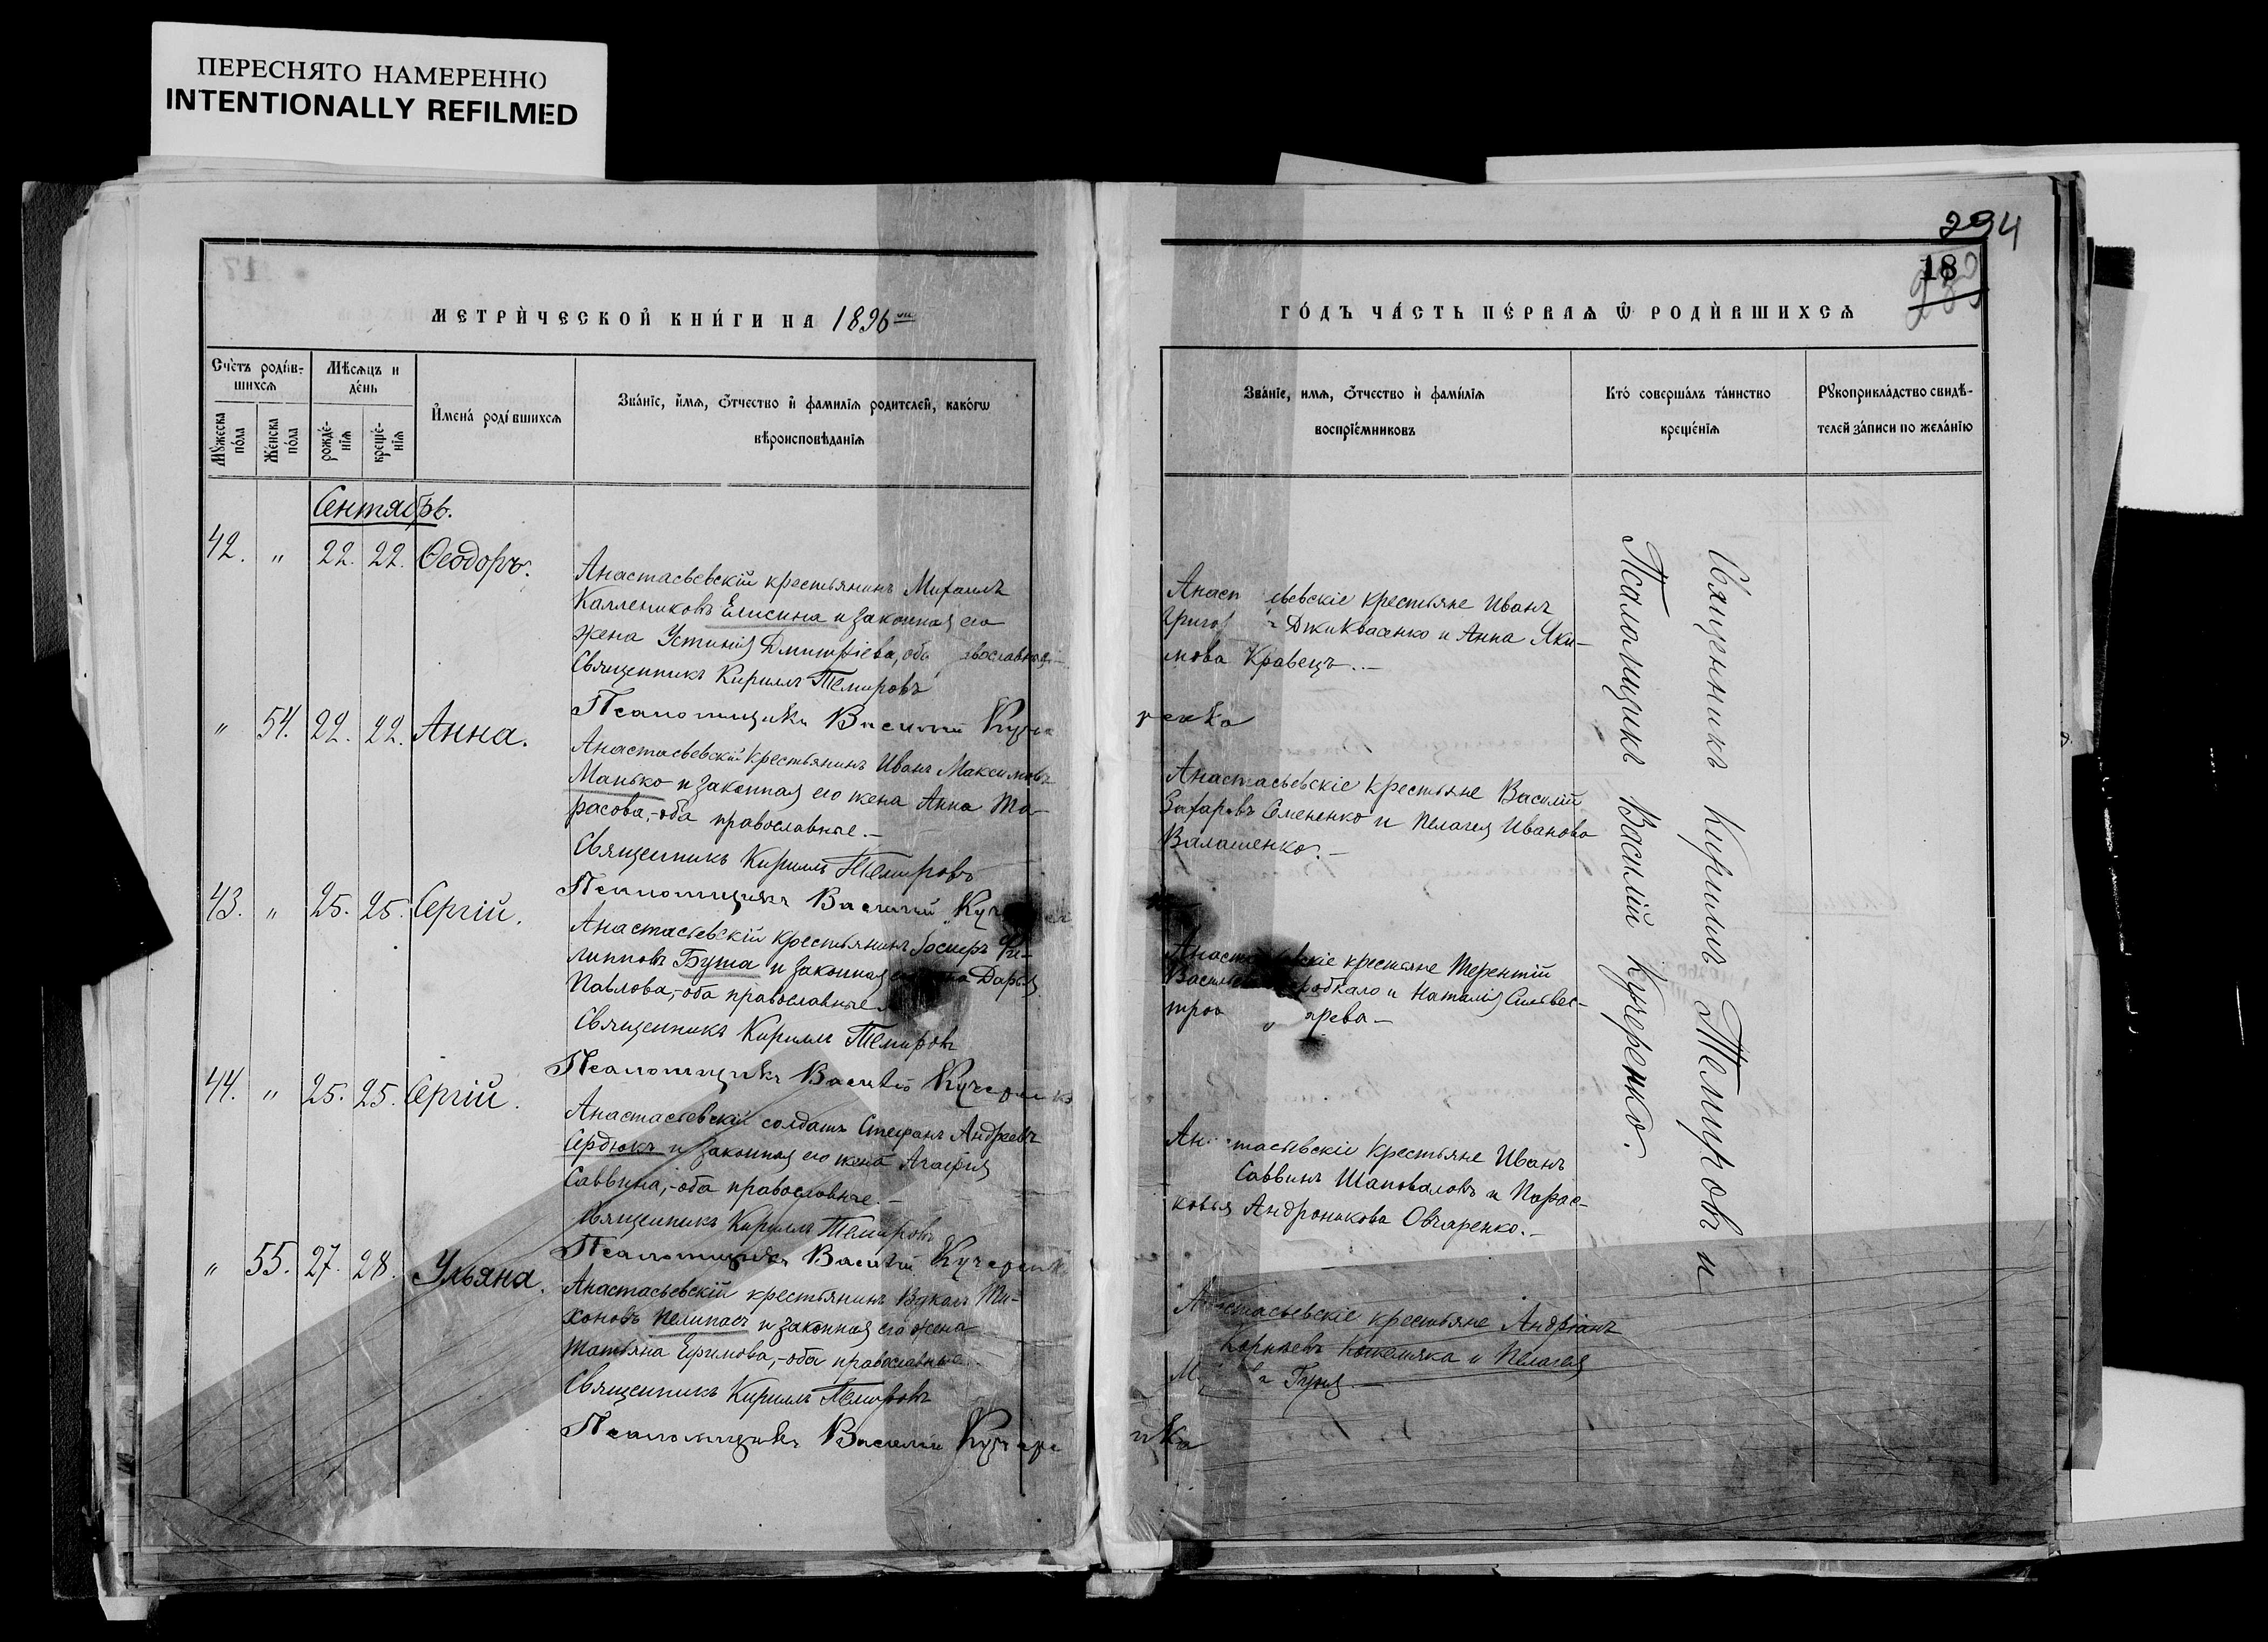 ПЕРЕСНЯТО НАМЕРЕННО
INTENTIONALLY REFILMED
294
18
МЕТРИ́ЧЕСКОЙ КНИ́ГИ НА 1896
ГО́ДЪ ЧА́СТЬ ПЕ́РВАѦ Ѿ РОДИ́ВШИХСѦ
Сче́тъ роди́в-
шихсѧ
Мѣсѧцъ и
де́нь
Мꙋжеска
по́ла
Же́нска
по́ла
рожде́-
нїѧ
креще́-
нїѧ
И҆мена̀ роди́вшихсѧ
Зва́нїе, и҆́мѧ, ѻ҆́тчество и҆ фами́лїѧ родителей, како́гѡ
вѣроисповѣ́данїѧ
Зва́нїе, имѧ, ѻ҆́тчество и҆ фами́лїѧ
воспрїе́мниковъ
Кто̀ соверша́лъ та́инство
креще́нїѧ
Рꙋкоприкла́дство свидѣ́-
телей за́писи по жела́нїю
Сентябрь.
42. " 22. 22. Ѳеодоръ.
Анастасьевскій крестьянинъ Михаилъ
Каллениковъ Елисина и законная его
жена Устинія Дмитріева, оба
Священникъ Кириллъ Темировъ
Псаломщикъ Василій
Анастасьевскіе крестьяне Иванъ
Джиквасенко и Анна Яки-
мова Кравецъ. –
" 54. 22. 22. Анна.
Анастасьевскій крестьянинъ Иванъ Максимовъ
Манько и законная его жена Анна Та-
расова, - оба православные. –
Священникъ Кириллъ Темировъ
Псаломщикъ Василій
Анастасьевскіе крестьяне Василій
Захаровъ Семененко и Пелагея Иванова
Валашенко. –
43. " 25. 25. Сергій.
Анастасьевскій крестьянинъ Іосифъ Фи-
липповъ Буша и законная Дарья
Павлова, - оба православные
Священникъ Кириллъ Темировъ
Псаломщикъ Василій Кучеренко
крестьяне Терентій
и Наталія Сильвес-
44. " 25. 25. Сергій.
Анастасьевскій солдатъ Стефанъ Андреевъ
Сердюкъ и законная его жена Агафія
Саввина, - оба православные. –
Священникъ Кириллъ Темировъ
Псаломщикъ Василій Кучеренко
Анастасьевскіе крестьяне Иванъ
Саввинъ Шаповаловъ и Парас-
ковья Андроникова Овчаренко. –
" 55. 27. 28. Ульяна.
Анастасьевскій крестьянинъ Вукалъ Ти-
хоновъ Пелипасъ и законная его жена
Татьяна Ефимова, - оба православные.
Священникъ Кириллъ Темировъ
Псаломщикъ Василій Кучере
нка
Анастасьевскіе крестьяне Андріанъ
Корнѣевъ Кожемяка и Пелагея
Гуня –
Священникъ Кириллъ Темировъ и
Псаломщикъ Василій Кучеренко.